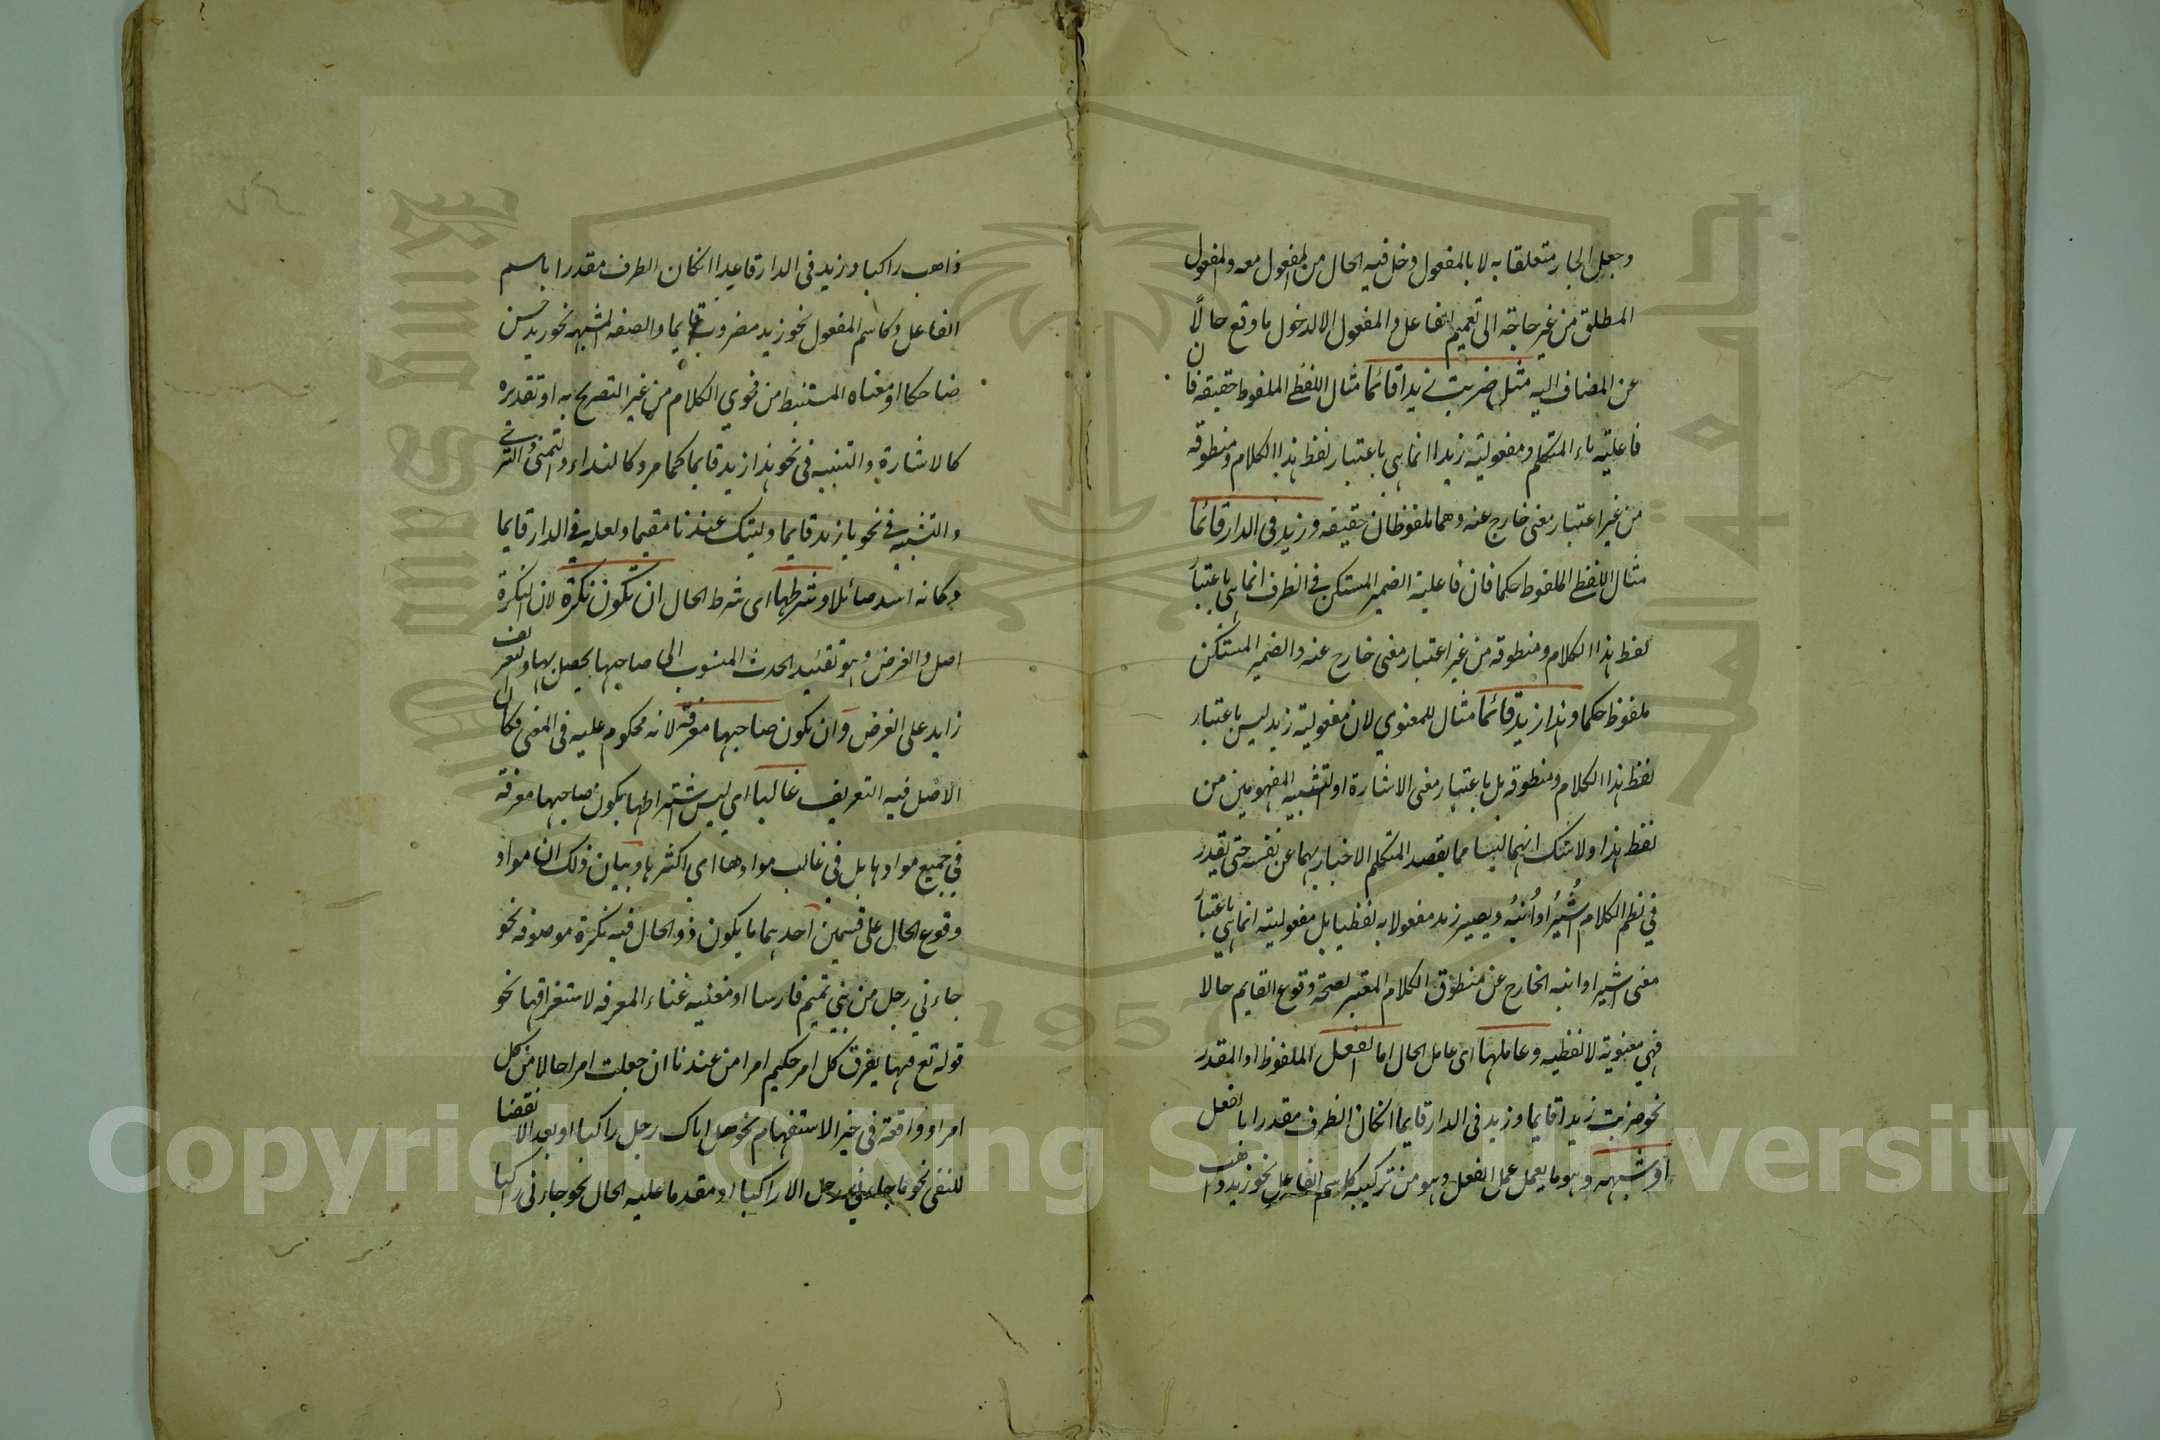 وجعل الجار متعلقا به لا بالمفعول دخل فيه الحال من المفعول معه والمفعول
المطلق من غير حاجة الى تعميم الفاعل والمفعول الا لدخول ما وقع حالًا
عن المضاف اليه مثل ضربت زيدا قائما مثال اللفظي الملفوظ حقيقة فان
فاعلية تاء المتكلم ومفعولية زيدا انما هي باعتبار لفظ هذا الكلام ومنطوقه
من غير اعتبار معنى خارج عنه وهما ملفوظان حقيقه وزيد في الدار قائما
مثال اللفظي الملفوظ حكما فان فاعلية الضمير المستكن في الظرف انما هي باعتبار
لفظ هذا الكلام ومنطوقه من غير اعتبار معنى خارج عنه والضمير المستكن
ملفوظ حكما وهذا زيد قائما مثال للمعنوي لان مفعولية زيد ليس باعتبار
لفظ هذا الكلام ومنطوقه بل باعتبار معنى الاشارة او التنبيه المفهومين من
لفظ هذا ولا شك انهما ليسا مما يقصد المتكلم الاخبار بهما عن نفسه حتى يقدر
في نظم الكلام اُشيرُ او اُنبّه ويصير زيد مفعولا به لفظيا بل مفعوليته انما هي باعتبار
معنى اشير او انبه الخارج عن منطوق الكلام المعتبر لصحة وقوع القايم حالا
فهي معنوية لا لفظيه وعاملها اى عامل الحال اما الفعل الملفوظ او المقدر
نحو ضربت زيدا قايما وزيد في الدار قايما انكان الظرف مقدرا بالفعل
او شبهه وهو ما يعمل عمل الفعل وهو من تركيبه كاسم الفاعل نحو زيد ذاهب
ذاهب راكبا وزيد في الدار قاعدا انكان الظرف مقدرا باسم
الفاعل وكاسم المفعول نحو زيد مضروب قايما والصفه المشبهه نحو زيد حسن
ضاحكا او معناه المستنبط من فحوي الكلام من غير التصريح به او تقديره
كالاشارة والتنبيه في نحو هذا زيد قايما كما مر وكالنداء والتمنى والترجى
والتشبيه في نحو يا زيد قايما وليتك عندنا مقيما ولعله في الدار قايما
وكانه اسد صائلا وشرطها اى شرط الحال ان تكون نكرة لان النكرة
اصل والغرض وهو تقئيد الحدث المنسوب الى صاحبها يحصل بها والتعريف
زايد على الغرض وان يكون صاحبها معرفة لانه محكوم عليه فى المعنى فكان
الاصل فيه التعريف غالبا اى ليس اشتراطها بكون صاحبها معرفة
في جميع موادها بل في غالب موادها اى اكثرها وبيان ذلك ان مواد
وقوع الحال على قسمين احدهما ما يكون ذو الحال فيه نكرة موصوفه نحو
جاءني رجل من بني تميم فارسا او مغنيه غناء المعرفه لاستغراقها نحو
قوله تع فيها يفرق كل امر حكيم امرا من عندنا ان جعلت امرا حالا من كل
امر او واقعة في حيز الاستفهام نحو هل اتاك رجل راكبا او بعد الا نقضا
للنفى نحو ما جاءني رجل الا راكبا او مقدما عليه الحال نحو جاءني راكبا